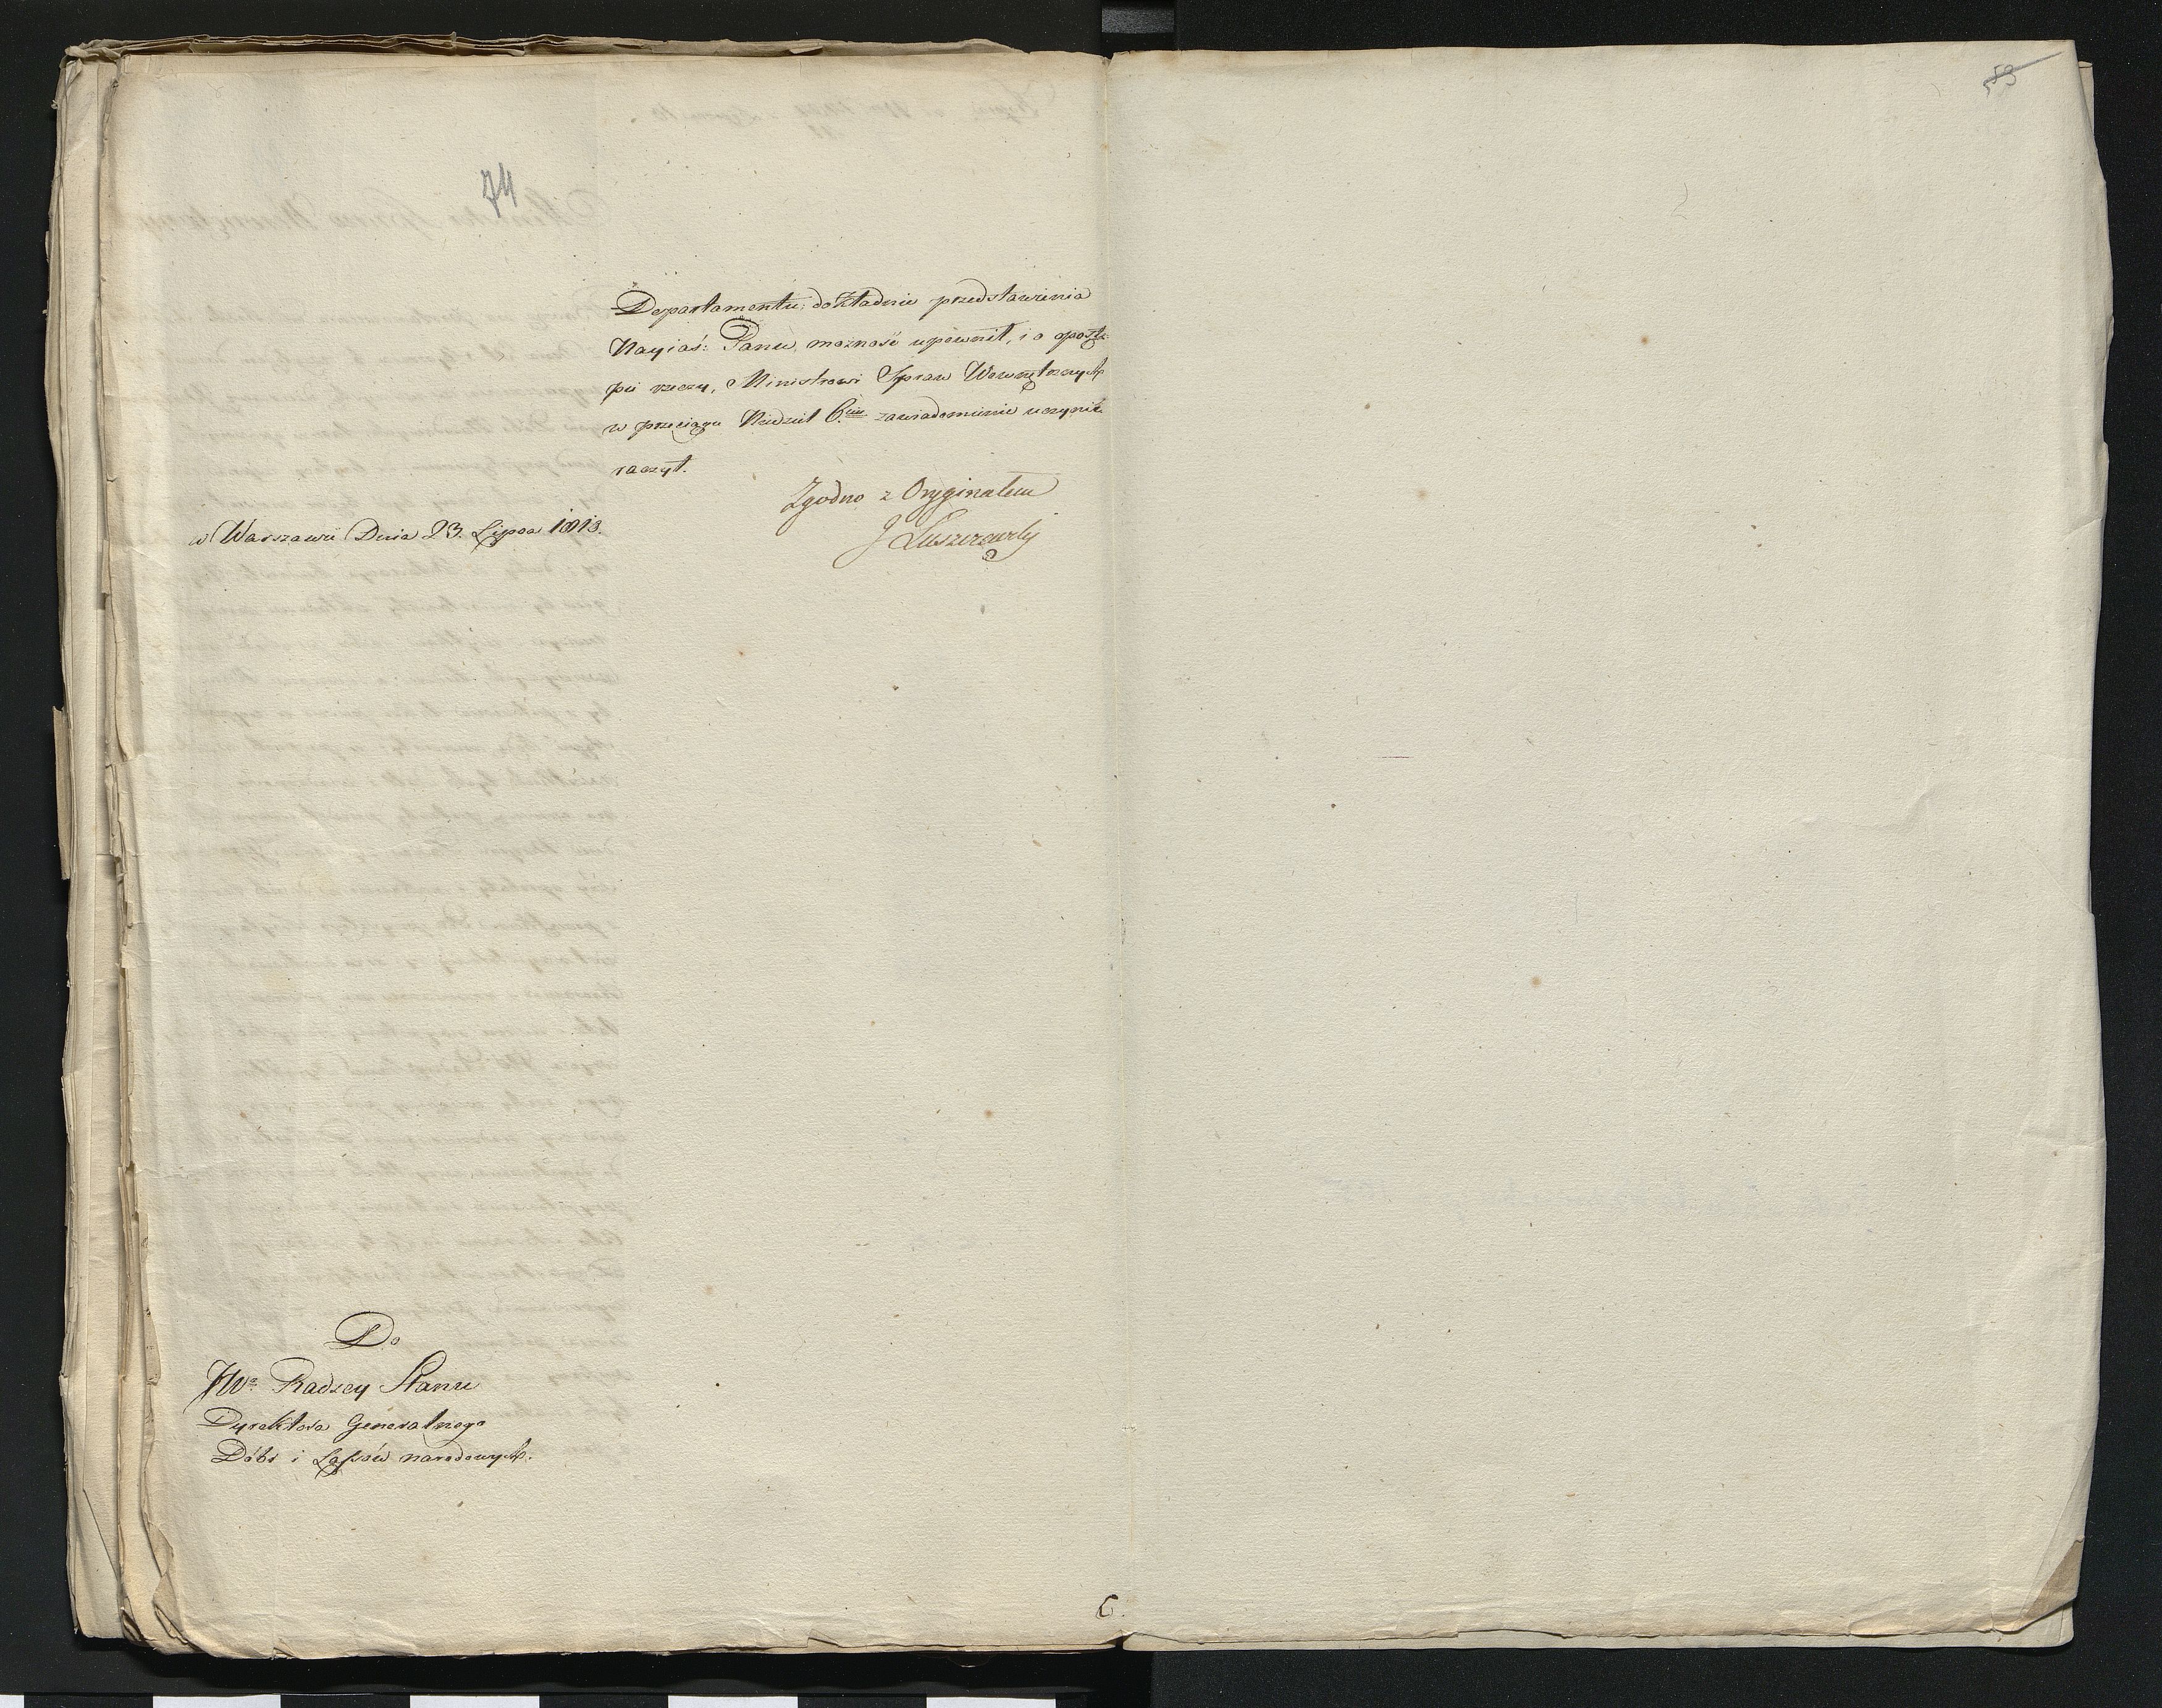 53
74
Departamentu, dokładnie przedstawienia
Nayiaś: Panu, możność upewnił, i o postę-
pie rzeczy, Ministrowi Spraw Wewnętrznych
w przeciągu Niedziel 6ciu zawiadomienie uczynić
raczył.
Zgodno z Oryginałem
J Łuszczewski
w Warszawie Dnia 23. Lipca 1813.
Do
JWo Radzcy Stanu
Dyrektora Generalnego
Dóbr i Lasów narodowych.
C.